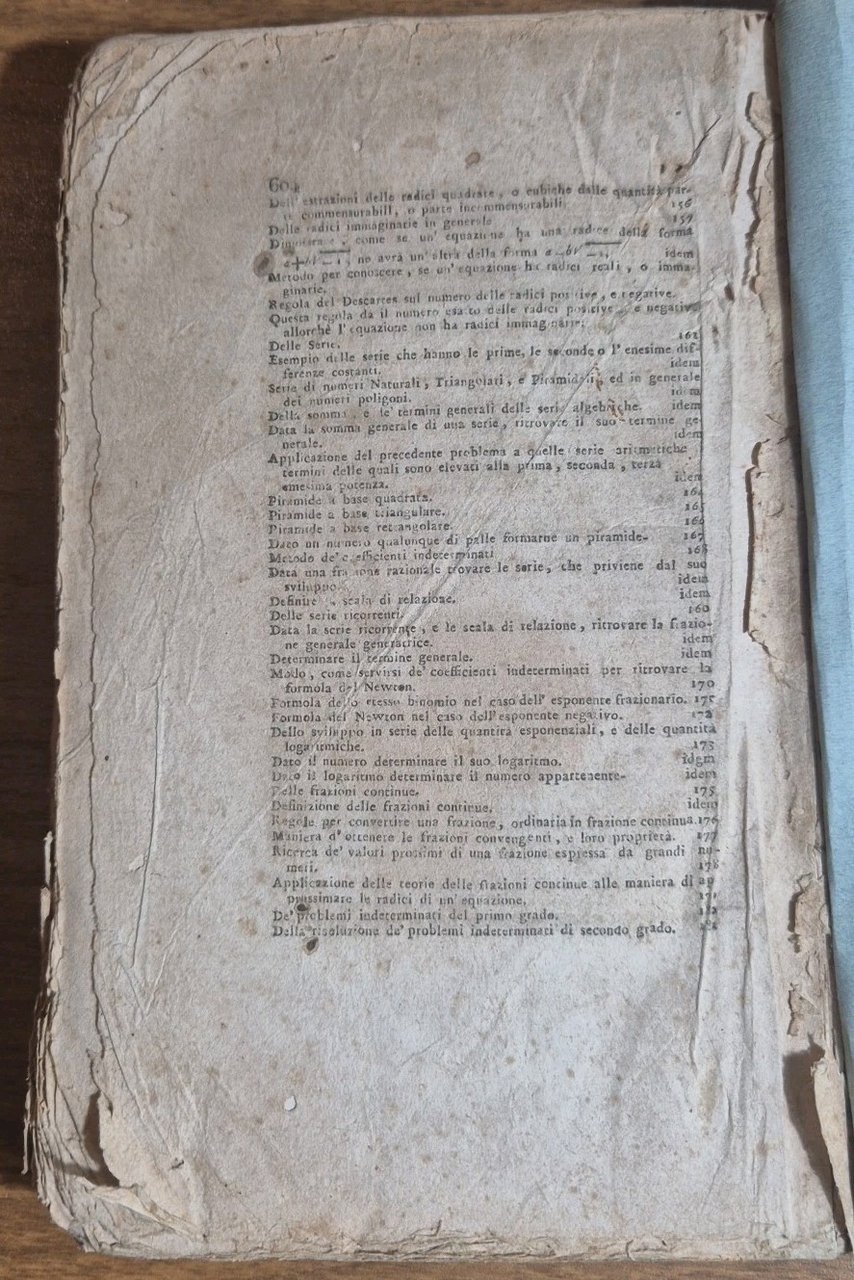 60
Dell' estrazioni delle radici quadrate, o cubiche dalle quantità par-
te commensurabili, o parte incommensurabili. 156
Delle radici immaginarie in generale 157
come se un' equazione ha una radice della forma
a+b√−1, ne avrà un' altra della forma a−b√−1, idem
Metodo per conoscere, se un' equazione ha radici reali, o imma-
ginarie.
Regola del Descartes sul numero delle radici positive, e negative.
Questa regola da il numero esatto delle radici positive, e negative
allorchè l' equazione non ha radici immaginarie.
Delle Serie. 162
Esempio delle serie che hanno le prime, le seconde o l' enesime dif-
ferenze costanti. idem
Serie di numeri Naturali, Triangolari, e Piramidali, ed in generale
dei numeri poligoni. idem
Della somma, e le termini generali delle serie algebriche. idem
Data la somma generale di una serie, ritrovare il suo termine ge-
nerale. idem
Applicazione del precedente problema a quelle serie aritmetiche
termini delle quali sono elevati alla prima, seconda, terza
emesima potenza. idem
Piramide a base quadrata. 164
Piramide a base triangulare. 165
Piramide a base rettangolare. 166
Dato un numero qualunque di palle formarne un piramide- 167
Metodo de' coefficienti indeterminati 168
Data una frazione razionale trovare le serie, che priviene dal suo
sviluppo. idem
Definire la scala di relazione. idem
Delle serie ricorrenti. 160
Data la serie ricorrente, e le scala di relazione, ritrovare la frazio-
ne generale generatrice. idem
Determinare il termine generale. idem
Modo, come servirsi de' coefficienti indeterminati per ritrovare la
formola del Newton. 170
Formola dello stesso binomio nel caso dell' esponente frazionario. 175
Formola del Newton nel caso dell' esponente negativo. 172
Dello sviluppo in serie delle quantità esponenziali, e delle quantità
logaritmiche. 173
Dato il numero determinare il suo logaritmo. idgm
Dato il logaritmo determinare il numero appartenente- idem
Delle frazioni continue. 175
Definizione delle frazioni continue. idem
Regole per convertire una frazione, ordinaria in frazione continua. 176
Maniera d' ottenere le frazioni convengenti, e loro proprietà. 177
Ricerca de' valori prossimi di una frazione espressa da grandi nu-
meri. 178
Applicazione delle teorie delle frazioni continue alle maniera di ap
prossimare le radici di un' equazione.
De' problemi indeterminati del primo grado.
Della risoluzione de' problemi indeterminati di secondo grado.